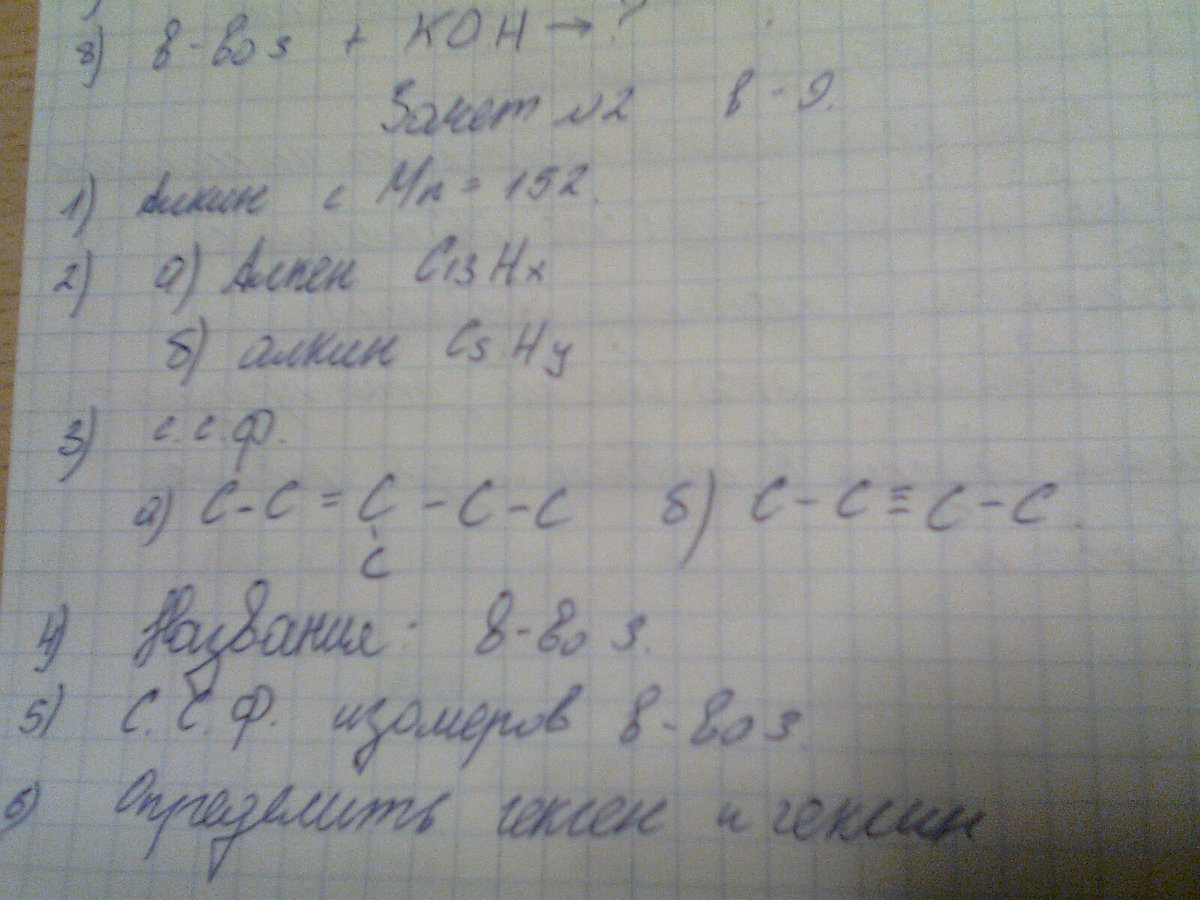 8) в-во 3 + KOH → ?
Зачет №2 в-9.
1) Алкин с Mr = 152.
2) а) Алкен C13Hx
б) алкин C5Hy
3) С.С.Ф.
а) C-C=C-C-C б) C-C≡C-C.
C
4) Названия: в-во 3.
5) С.С.Ф. изомеров в-во 3
6) Определить гексен и гексин